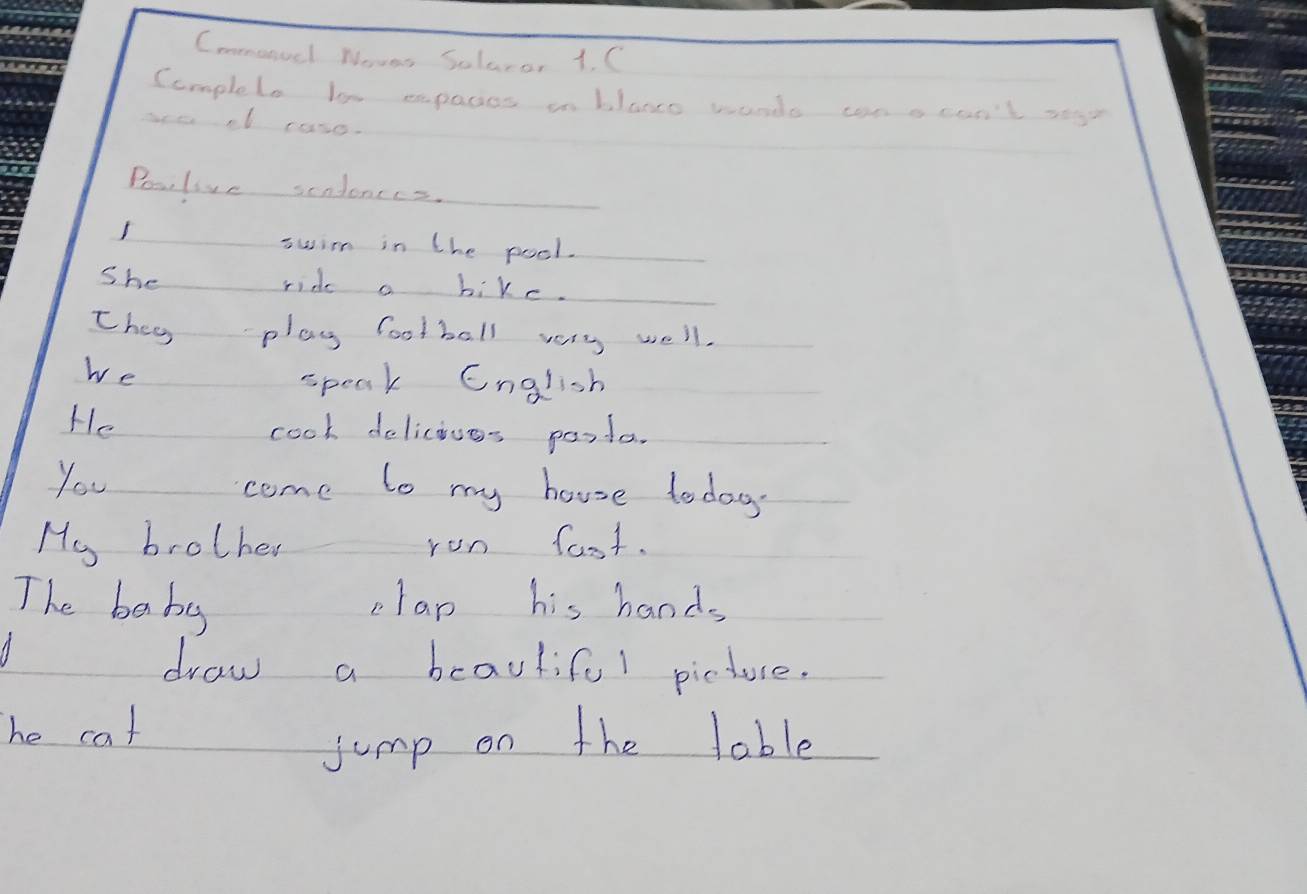 Emmanuel Navas Salazar 1.C
Completo los espacios en blanco usando can o can't segun
sea el caso.
Positive sentences.
I swim in the pool.
She ride a bike.
They play football very well.
We speak English
He cook delicious pasta.
You come to my house today.
My brother run fast.
The baby clap his hands
I draw a beautiful picture.
he cat jump on the table